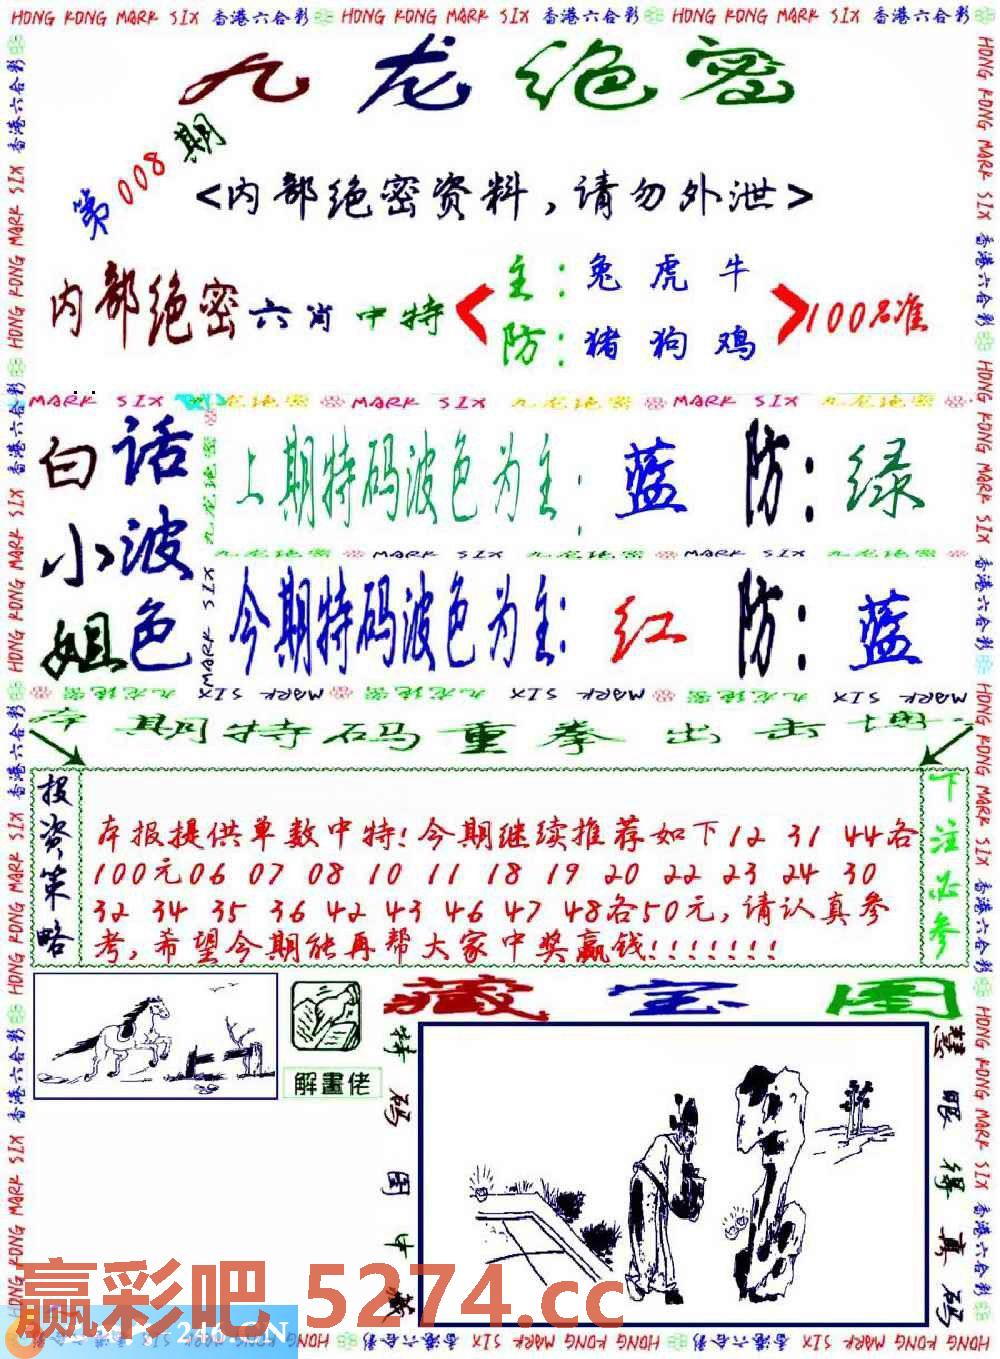 HONG KONG MARK SIX 香港六合彩 HONG KONG MARK SIX 香港六合彩 HONG KONG MARK SIX 香港六合彩
九龙绝密
第008期
<内部绝密资料,请勿外泄>
内部绝密六肖中特
主:兔 虎 牛
防:猪 狗 鸡
100%准
MARK SIX 九龙绝密 MARK SIX 九龙绝密 MARK SIX 九龙绝密
白小姐
话波色
上期特码波色为主: 蓝 防: 绿
九龙绝密 MARK SIX 九龙绝密 MARK SIX 九龙绝密
今期特码波色为主: 红 防: 蓝
本期特码重拳出击
投资策略
本报提供单数中特!今期继续推荐如下12 31 44各
100元06 07 08 10 11 18 19 20 22 23 24 30
32 34 35 36 42 43 46 47 48各50元,请认真参
考,希望今期能再帮大家中奖赢钱!!!!!!!
下注必参
藏宝图
解畫佬
特码图中藏
慧眼得真码
赢彩吧 5274.cc
246.CN